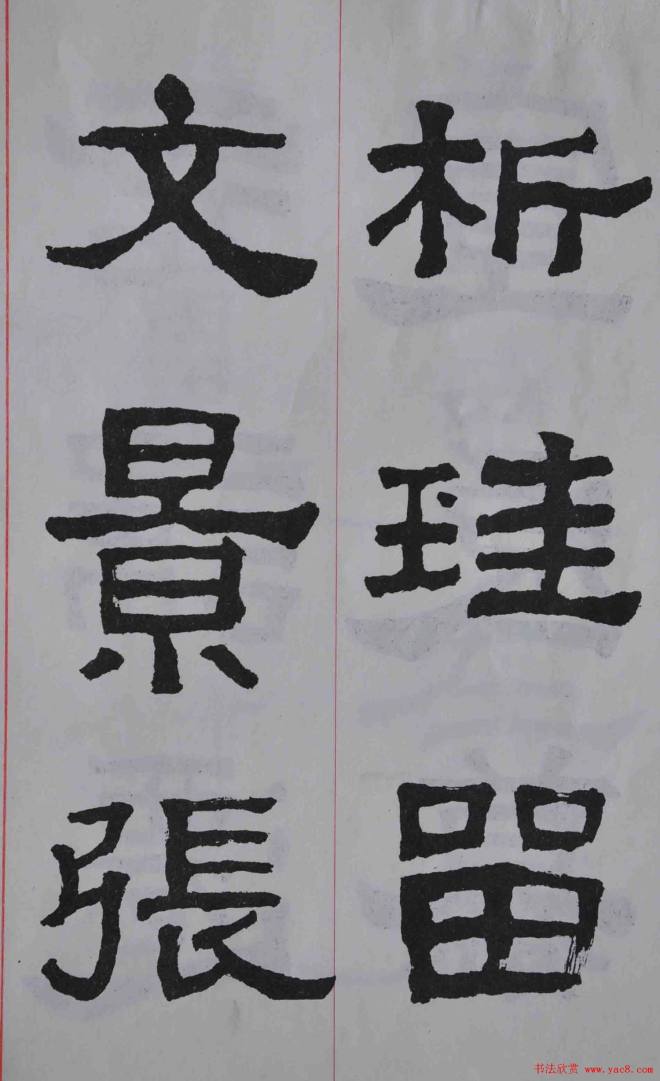 析珪㽞
文景張
书法欣赏 www.yac8.com